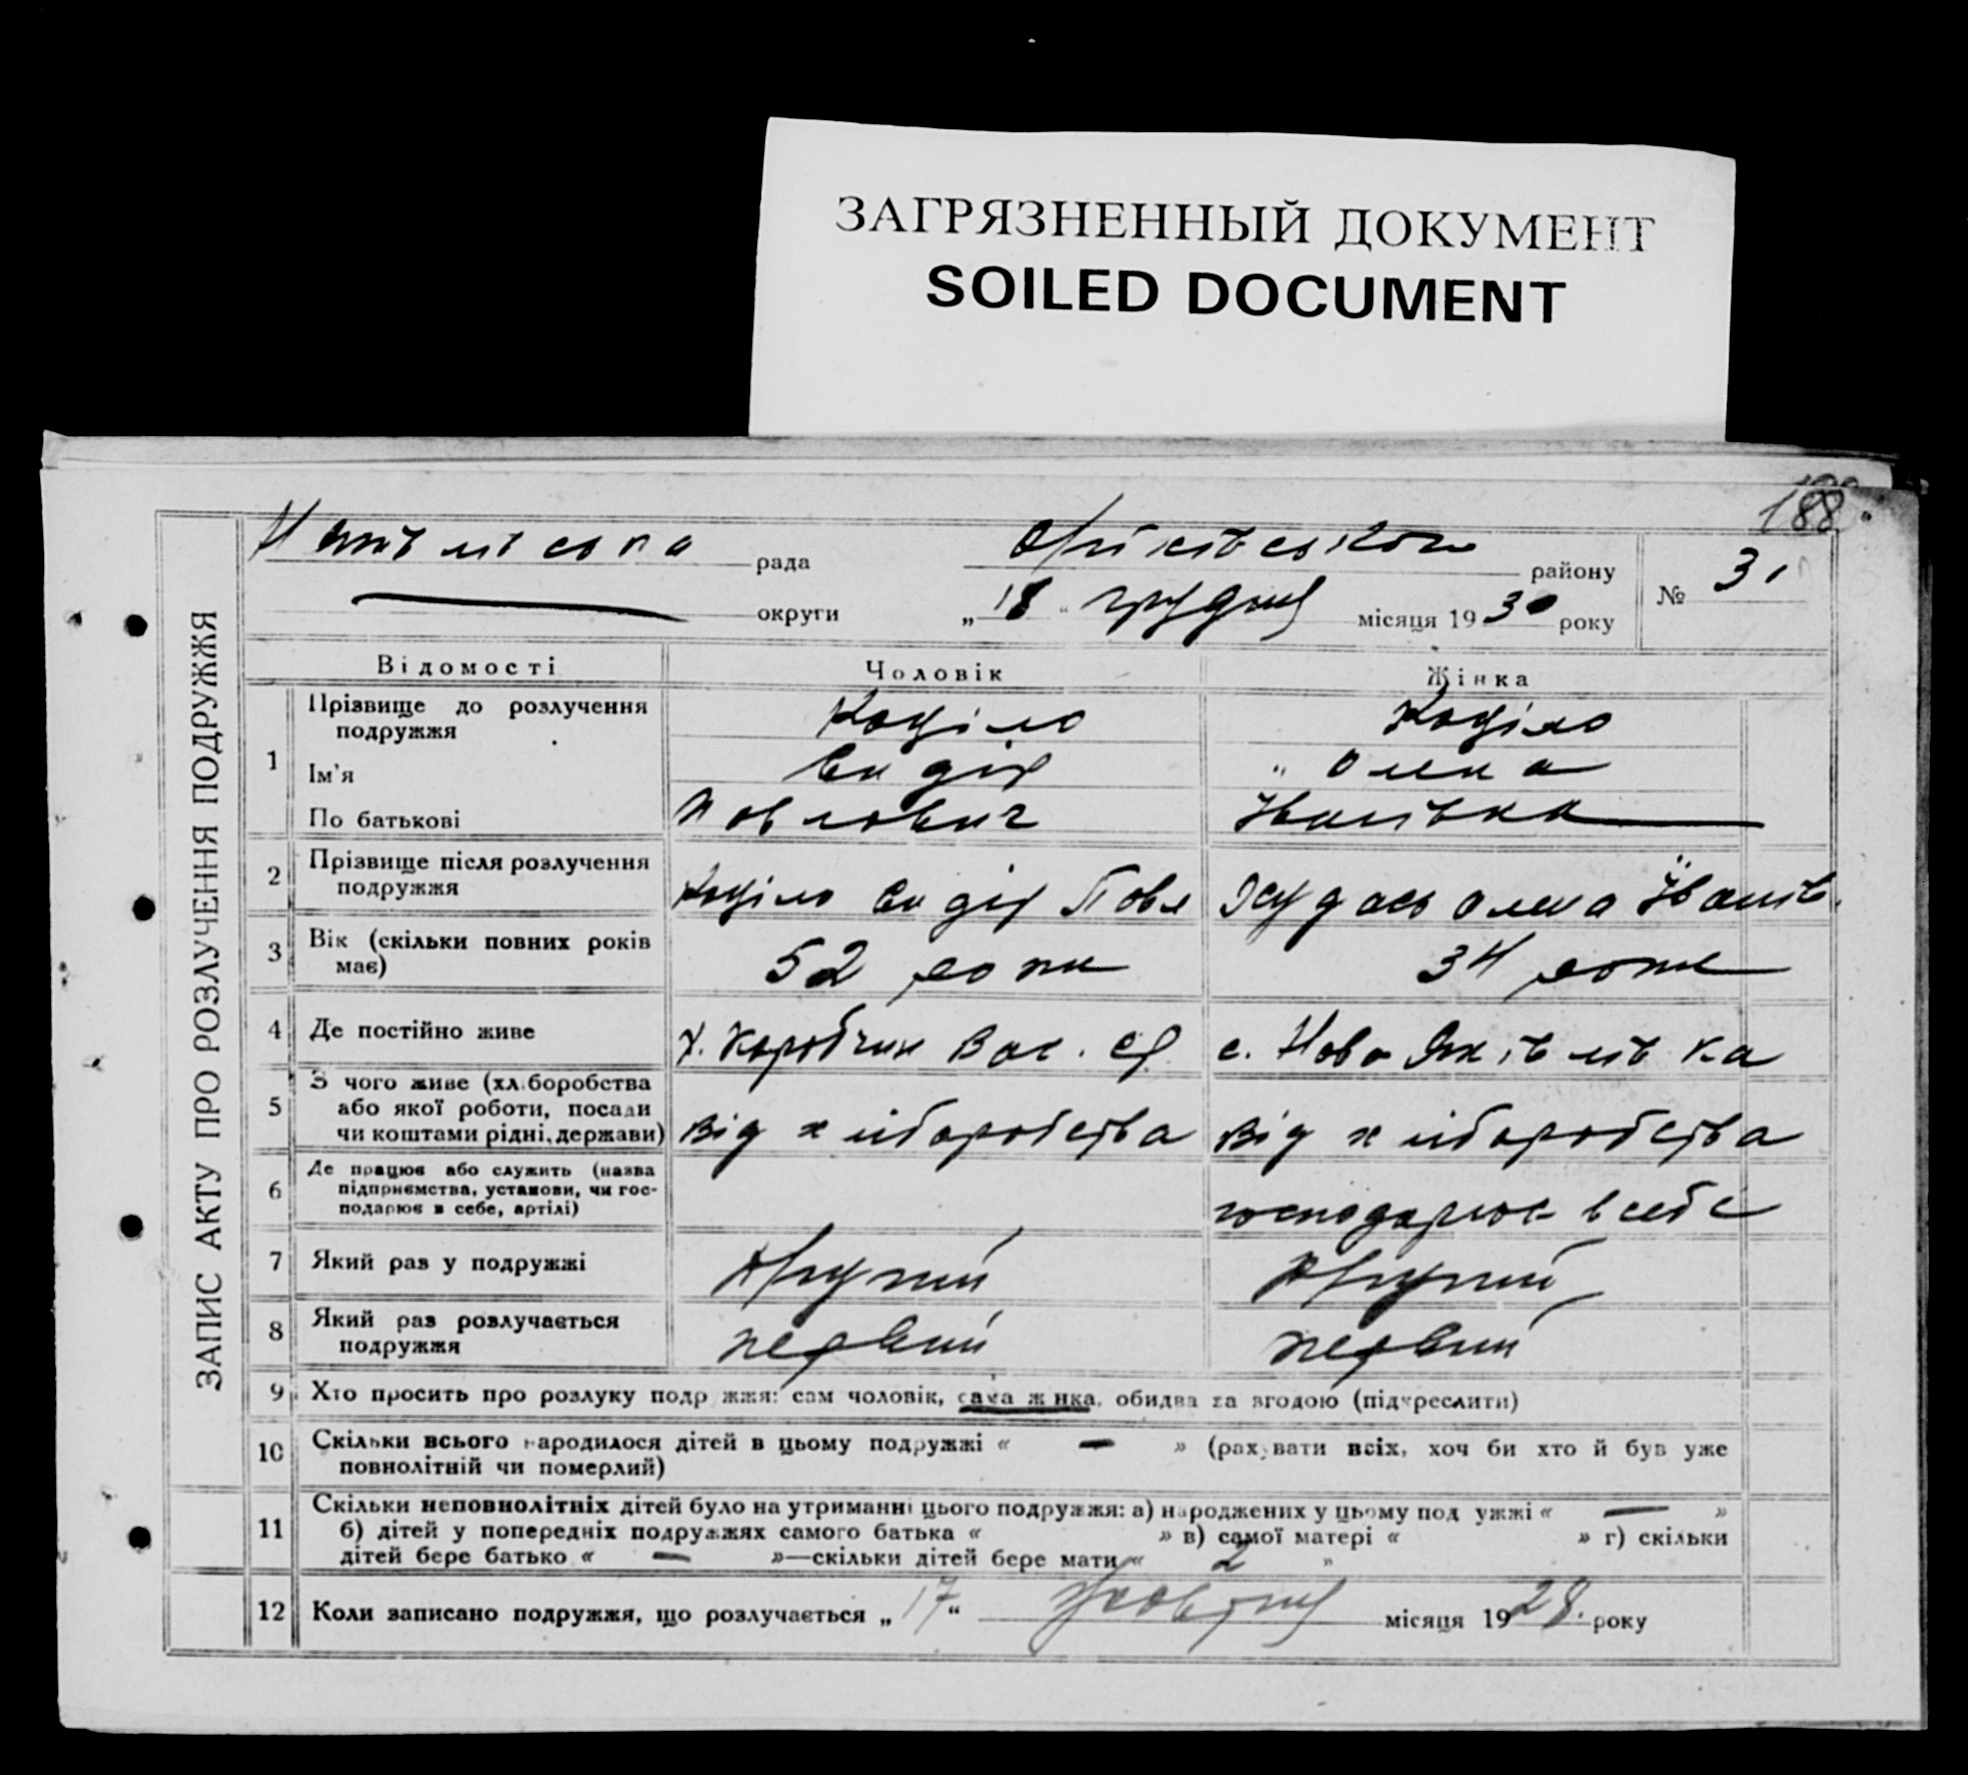 ЗАГРЯЗНЕННЫЙ ДОКУМЕНТ
SOILED DOCUMENT
188
ЗАПИС АКТУ ПРО РОЗЛУЧЕННЯ ПОДРУЖЖЯ
рада району № 31
округи „18“ грудня місяця 1930 року
Відомості Чоловік Жінка
1 Прізвище до розлучення подружжя Коціло Коціло
Ім'я Олена
По батькові Павлович Іванівна
2 Прізвище після розлучення подружжя Коціло Павл Олена Іванів.
3 Вік (скільки повних років має) 52 роки 34 роки
4 Де постійно живе х. Коробчин Вас. с. Ново Яківлівка
5 З чого живе (хліборобства
або якої роботи, посади
чи коштами рідні, держави) Від хліборобства Від хліборобства
6 Де працює або служить (назва
підприємства, установи, чи гос-
подарює в себе, артілі) господарює в себе
7 Який раз у подружжі другий другий
8 Який раз розлучається
подружжя первий первий
9 Хто просить про розлуку подружжя: сам чоловік, сама жінка, обидва за згодою (підкреслити)
10 Скільки всього народилося дітей в цьому подружжі « — » (рахувати всіх, хоч би хто й був уже
повнолітній чи померлий)
11 Скільки неповнолітніх дітей було на утриманні цього подружжя: а) народжених у цьому подружжі « — »
б) дітей у попередніх подружжях самого батька « » в) самої матері « » г) скільки
дітей бере батько « — »—скільки дітей бере мати « 2 »
12 Коли записано подружжя, що розлучається „17“ жовтня місяця 1928. року